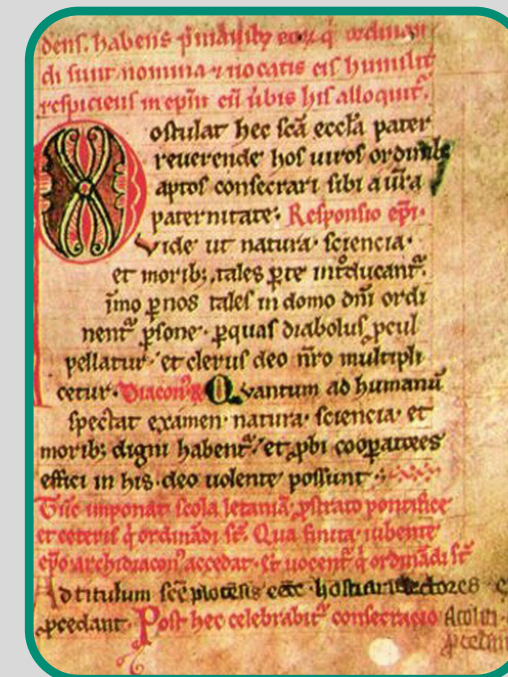 dens. habens p̄ manib; eoꝝ q̇ ordinan
di sunt nomina ⁊ uocatis eis humilit̄
respiciens in ep̄m cū ūbis his alloquit᷑.
ostulat hec sc̄a eccl̄a pater
reuerende hos uiros ordinib;
aptos consecrari sibi a ūra
paternitate. Responsio ep̄i.
Vide ut natura. sciencia.
et morib; tales ꝑ te int̄ducant᷑.
īmo ꝑ nos tales in domo dn̄i ordi
nent᷑ ꝑsone. ꝑ quas diabolus ꝓcul
pellatur. et clerus deo nr̄o multipli
cetur. Diacon᷒ Quantum ad humanū
spectat examen. natura. sciencia. et
morib; digni habent᷑. et ꝓbi coopatores
effici in his. deo uolente possunt.
Tūc imponat scola letaniā, ꝓstrato pontifice
et ceteris q̇ ordinādi st̄. Qua finita iubente
ep̄o archidiacon᷒ accedat. et uocent᷑ q̇ ordinādi st̄
Ad titulum sc̄e
ꝓcedant. Post hec celebrabit᷑ consecratio Acoliti